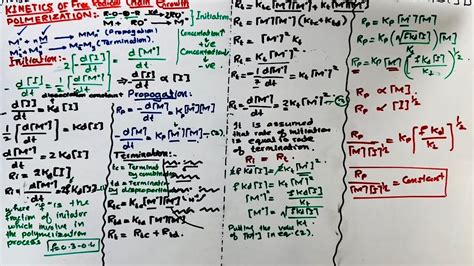 KINETICS OF Free Radical Chain Growth
POLMERIZATION:-
R-O-O-R 2RO°
M + RO°
} Initiation
M° + nM → MM°n (Propagation)
M°n + M°m → MnMm (Termination)
Concentration↑ +ve
Concentration↓ -ve
Initiation:-
-d[I]/dt = 1/2 [d[M°]/dt]
-d[I]/dt ∝ [I]
-d[I]/dt = Kd[I]
dissociation constant
1/2 [d[M°]/dt] = Kd[I]
d[M°]/dt = 2Kd[I]
Ri = 2Kd[I]
Ri = d[M°]/dt = 2fKd[I]
where 'f' is the
fraction of initator
which involve in
the polymerization
process
f=0.3-0.8
Propogation:-
Rp = -d[M]/dt ∝ [M°][M]
Rp = -d[M]/dt = Kp[M°][M]
-d[M]/dt = Kp[M°][M] -(2)
Termination:-
tc = Terminat
by combination
td = Termination
by disproportion
Rtc = Ktc[M°][M°]
Rtd = Ktd[M°][M°]
Rt = Rtc + Rtd
Rt = Ktc[M°][M°] + Ktd[M°][M°]
Rt = [M°][M°](Ktc + Ktd)
Rt = Kt[M°]²
Rt = -1/2 d[M°]/dt = Kt[M°]²
-d[M°]/dt = 2Kt[M°]² -(3)
It is assumed
that rate of initiation
is equal to rate
of termination.
Ri = Rt
2fKd[I] = 2Kt[M°]²
fKd[I] = Kt[M°]²
[M°]² = fKd[I]/Kt
[M°] = (fKd[I]/Kt)^1/2
Putting the value
of [M°] in eq:(2).
Rp = Kp[M°][M]
Rp = Kp(√fKd[I]/Kt)[M]
Rp = Kp[M](fKd[I]/Kt)^1/2
Rp ∝ [M]
Rp ∝ [I]^1/2
Rp/[M][I]^1/2 = Kp(fKd/Kt)^1/2
Rp/[M][I]^1/2 = Constant